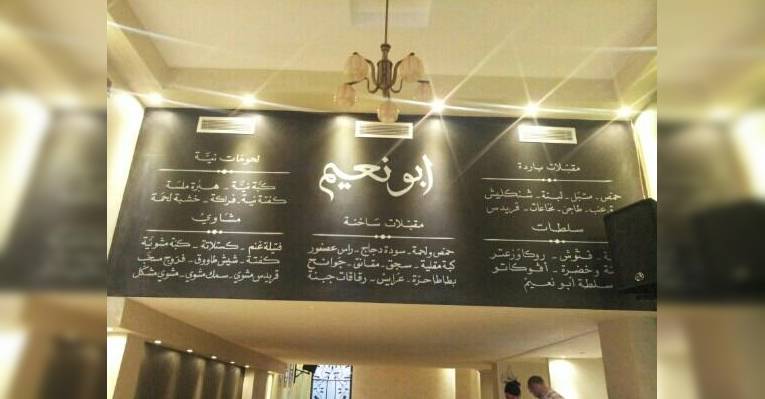 ابو نعيم
مقبلات باردة
حمص - متبل - لبنة - شنكليش
طاجن - نخاعات - قريدس
سلطات
فتوش - روكا وزعتر
وخضرة - أفوكاتو
سلطة أبو نعيم
مقبلات ساخنة
حمص ولحمة - سودة دجاج - راس عصفور
كبة مقلية - سجق - مقانق - جوانح
بطاطا حرة - عرايس - رقاقات جبنة
لحومات نية
كبة نية - هبرة ملسة
كفتة نية - فراكة - خشبة لحمة
مشاوي
فتلة غنم - كستلاتة - كبة مشوية
كفتة - شيش طاووق - فروج مسحب
قريدس مشوي - سمك مشوي - مشوي مشكل